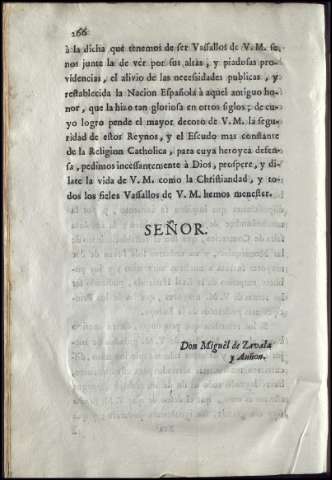 266
à la dicha que tenemos de ser Vassallos de V. M. se
nos junte la de vér por sus altas, y piadosas pro-
videncias, el alivio de las necessidades publicas, y
restablecida la Nacion Española à aquel antiguo ho-
nor, que la hizo tan gloriosa en otros siglos; de cu-
yo logro pende el mayor decoro de V. M. la segu-
ridad de estos Reynos, y el Escudo mas constante
de la Religion Catholica, para cuya heroyca defen-
sa, pedimos incessantemente à Dios, prospere, y di-
late la vida de V. M. como la Christiandad, y to-
dos los fieles Vassallos de V. M. hemos menester.
SEÑOR.
Don Miguèl de Zavala
y Auñon.